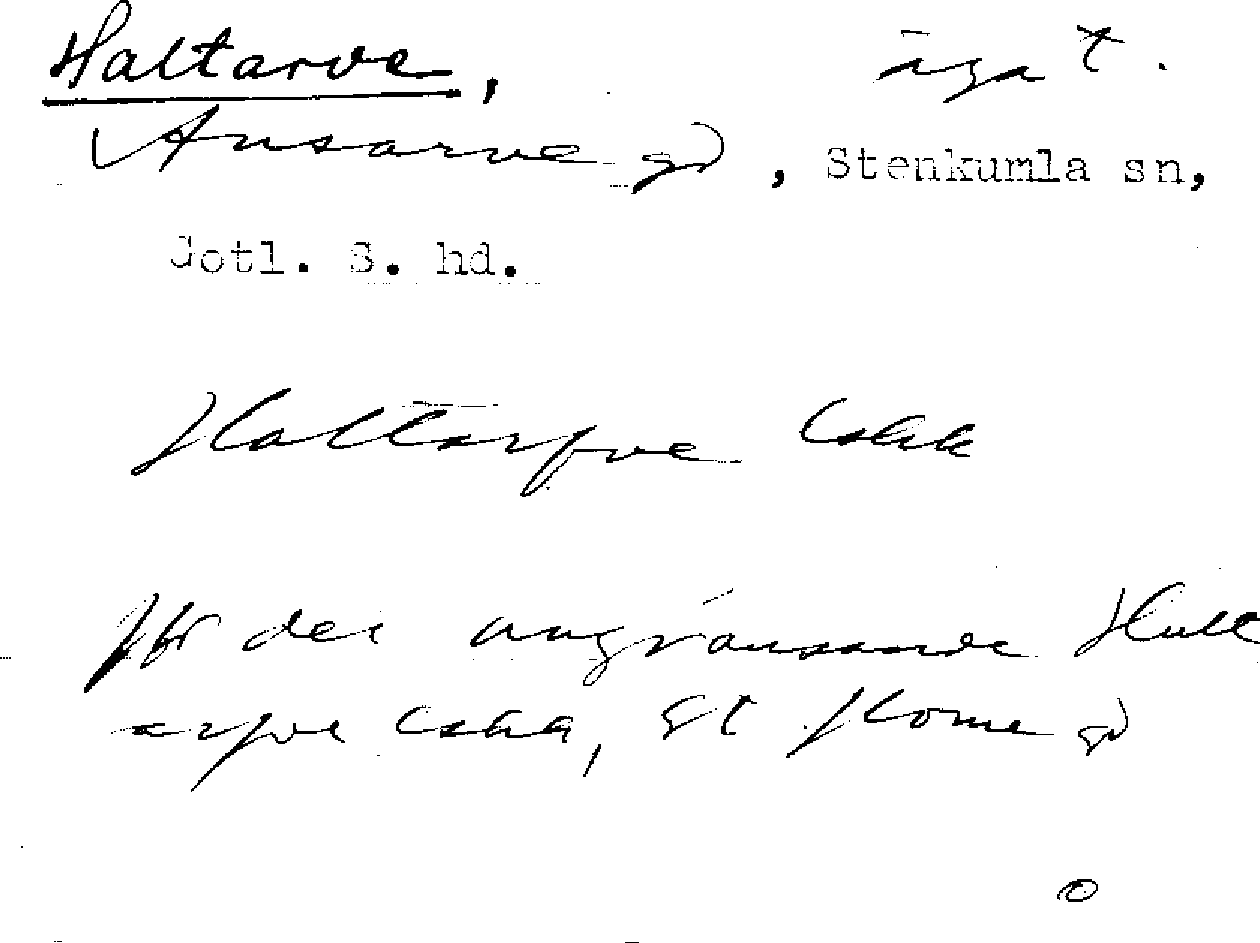 Haltarve, äga t.
Ansarve gd, Stenkumla sn,
Gotl. S. hd.
Haltarfve
Jfr det angränsande Hult
arfve St Home gd